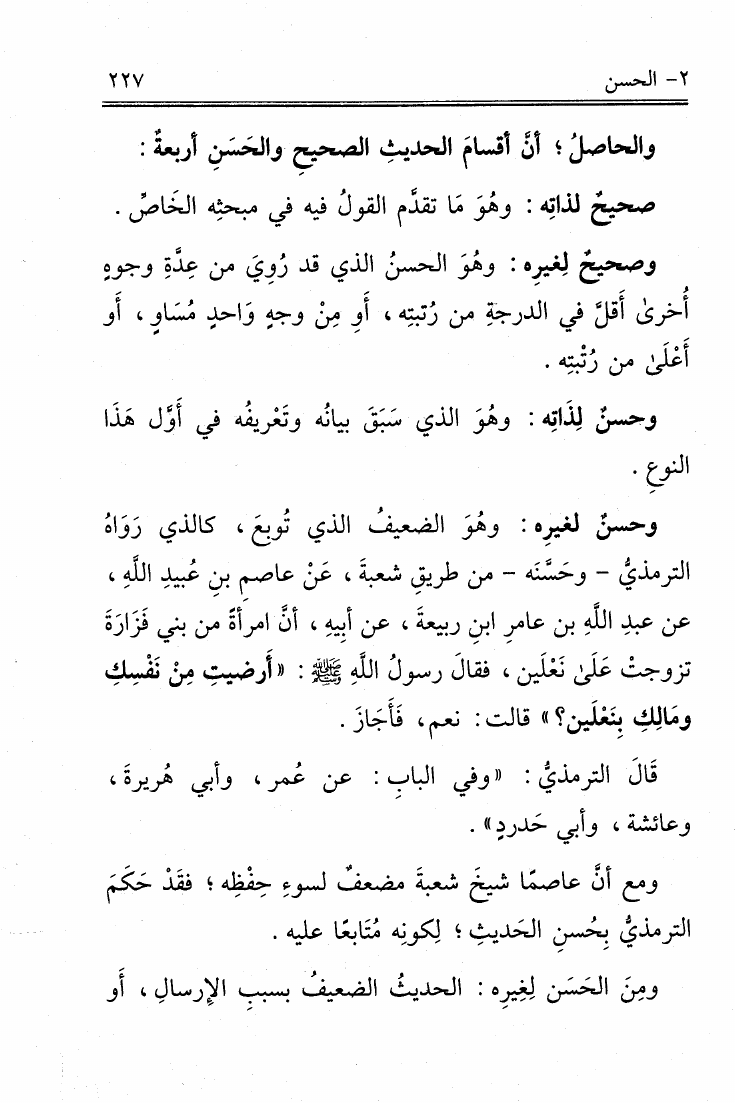 ٢- الحسن ٢٢٧
والحاصلُ ؛ أنَّ أقسامَ الحديثِ الصحيحِ والحَسَنِ أربعةٌ :
صحيحٌ لذاتِه : وهُوَ مَا تقدَّم القولُ فيه في مبحثِه الخَاصِّ .
وصحيحٌ لِغيرِه : وهُوَ الحسنُ الذي قد رُوِيَ من عِدَّةِ وجوهٍ
أُخرىٰ أَقلَّ في الدرجةِ من رُتبتِه ، أَوِ مِنْ وجهٍ وَاحدٍ مُسَاوٍ ، أَو
أَعْلَىٰ من رُتْبتِه .
وحسنٌ لِذَاتِه : وهُوَ الذي سَبَقَ بيانُه وتَعْريفُه في أوَّل هَذَا
النوعِ .
وحسنٌ لغيرِه : وهُوَ الضعيفُ الذي تُوبعَ ، كالذي رَوَاهُ
الترمذيُّ - وحَسَّنَه - من طريقِ شعبةَ ، عَنْ عاصمِ بنِ عُبيدِ اللَّهِ ،
عن عبدِ اللَّهِ بن عامرِ ابنِ ربيعةَ ، عن أبيهِ ، أنَّ امرأةً من بني فَزَارَةَ
تزوجتْ عَلَىٰ نَعْلَين ، فقالَ رسولُ اللَّهِ ﷺ : «أَرضيتِ مِنْ نَفْسِكِ
ومَالِكِ بِنَعْلَين؟» قالت : نعم ، فَأَجَازَ .
قَالَ الترمذيُّ : «وفي البابِ : عن عُمر ، وأبي هُريرةَ ،
وعائشة ، وأبي حَدردٍ» .
ومع أنَّ عاصمًا شيخَ شعبةَ مضعفٌ لسوءِ حِفْظِه ؛ فقَدْ حَكَمَ
الترمذيُّ بِحُسنِ الحَديثِ ؛ لِكونِه مُتَابعًا عليه .
ومِنَ الحَسَن لِغيرِه : الحديثُ الضعيفُ بسببِ الإرسالِ ، أَو